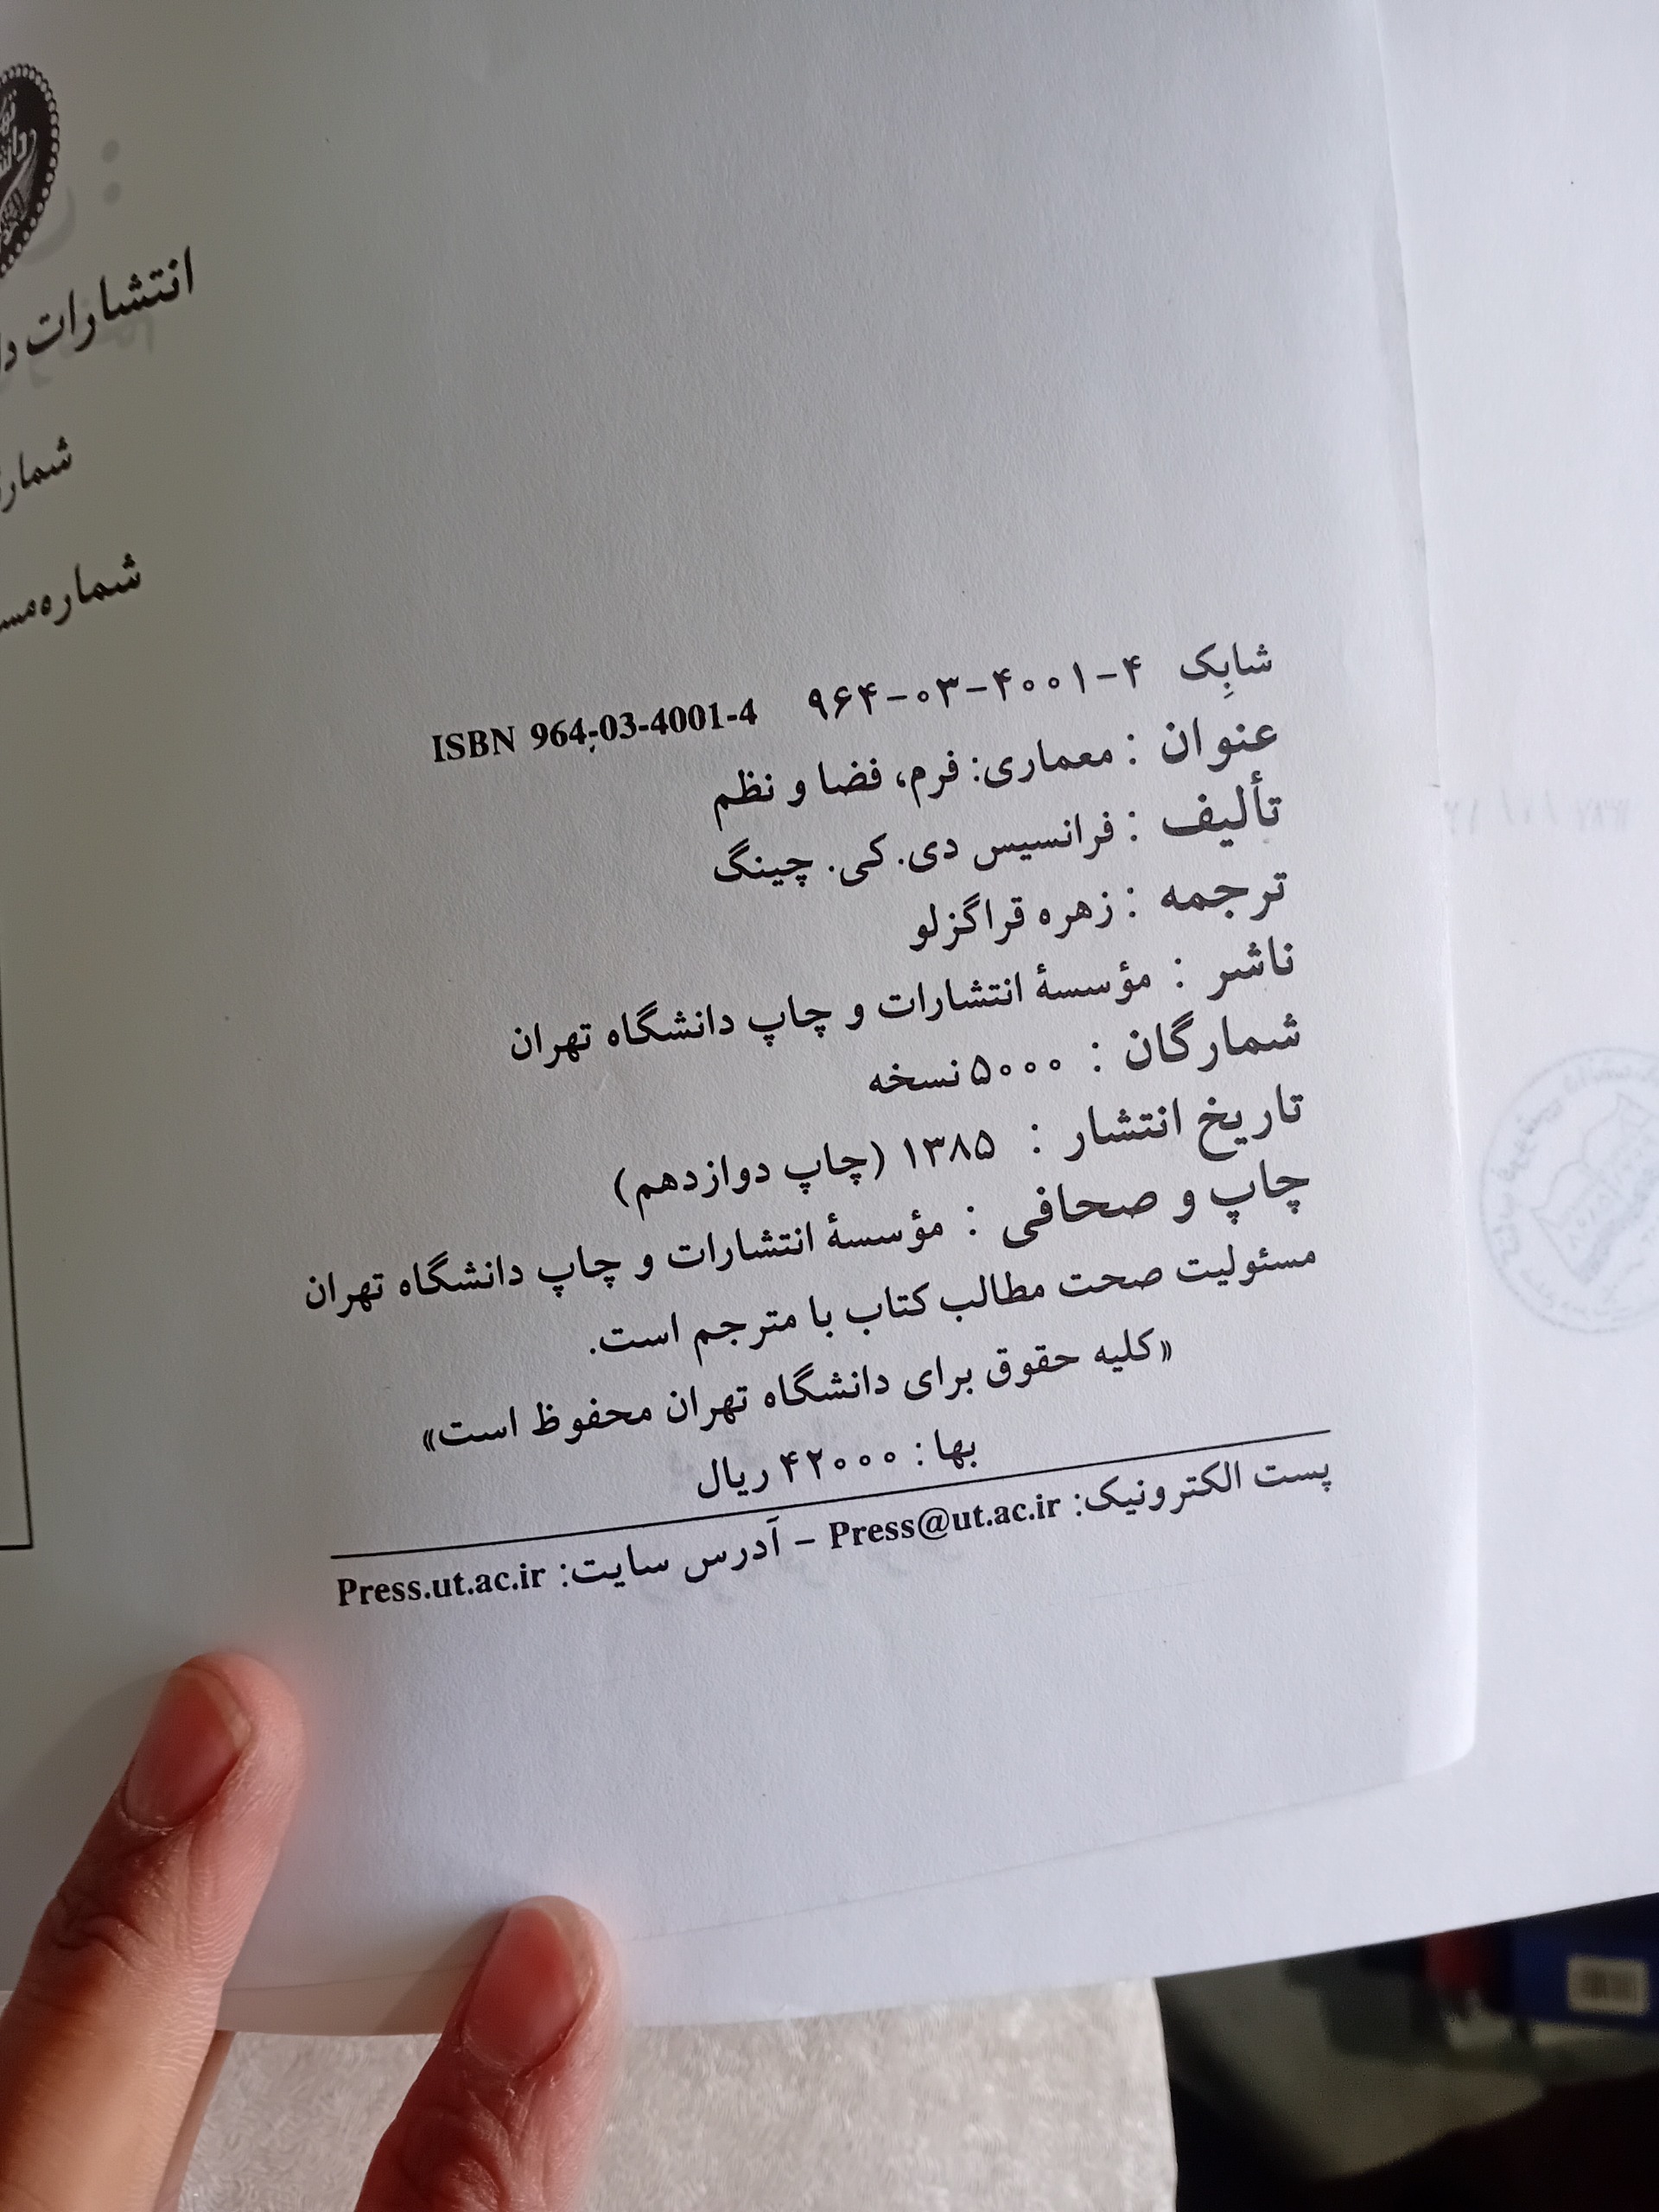 انتشارات
شماره
شابک ۴-۴۰۰۱-۰۳-۹۶۴ ISBN 964-03-4001-4
عنوان : معماری: فرم، فضا و نظم
تألیف : فرانسیس دی. کی. چینگ
ترجمه : زهره قراگزلو
ناشر : مؤسسهٔ انتشارات و چاپ دانشگاه تهران
شمارگان : ۵۰۰۰ نسخه
تاریخ انتشار : ۱۳۸۵ (چاپ دوازدهم)
چاپ و صحافی : مؤسسهٔ انتشارات و چاپ دانشگاه تهران
مسئولیت صحت مطالب کتاب با مترجم است.
«کلیه حقوق برای دانشگاه تهران محفوظ است»
بها: ۴۲۰۰۰ ریال
پست الکترونیک: Press@ut.ac.ir – آدرس سایت: Press.ut.ac.ir